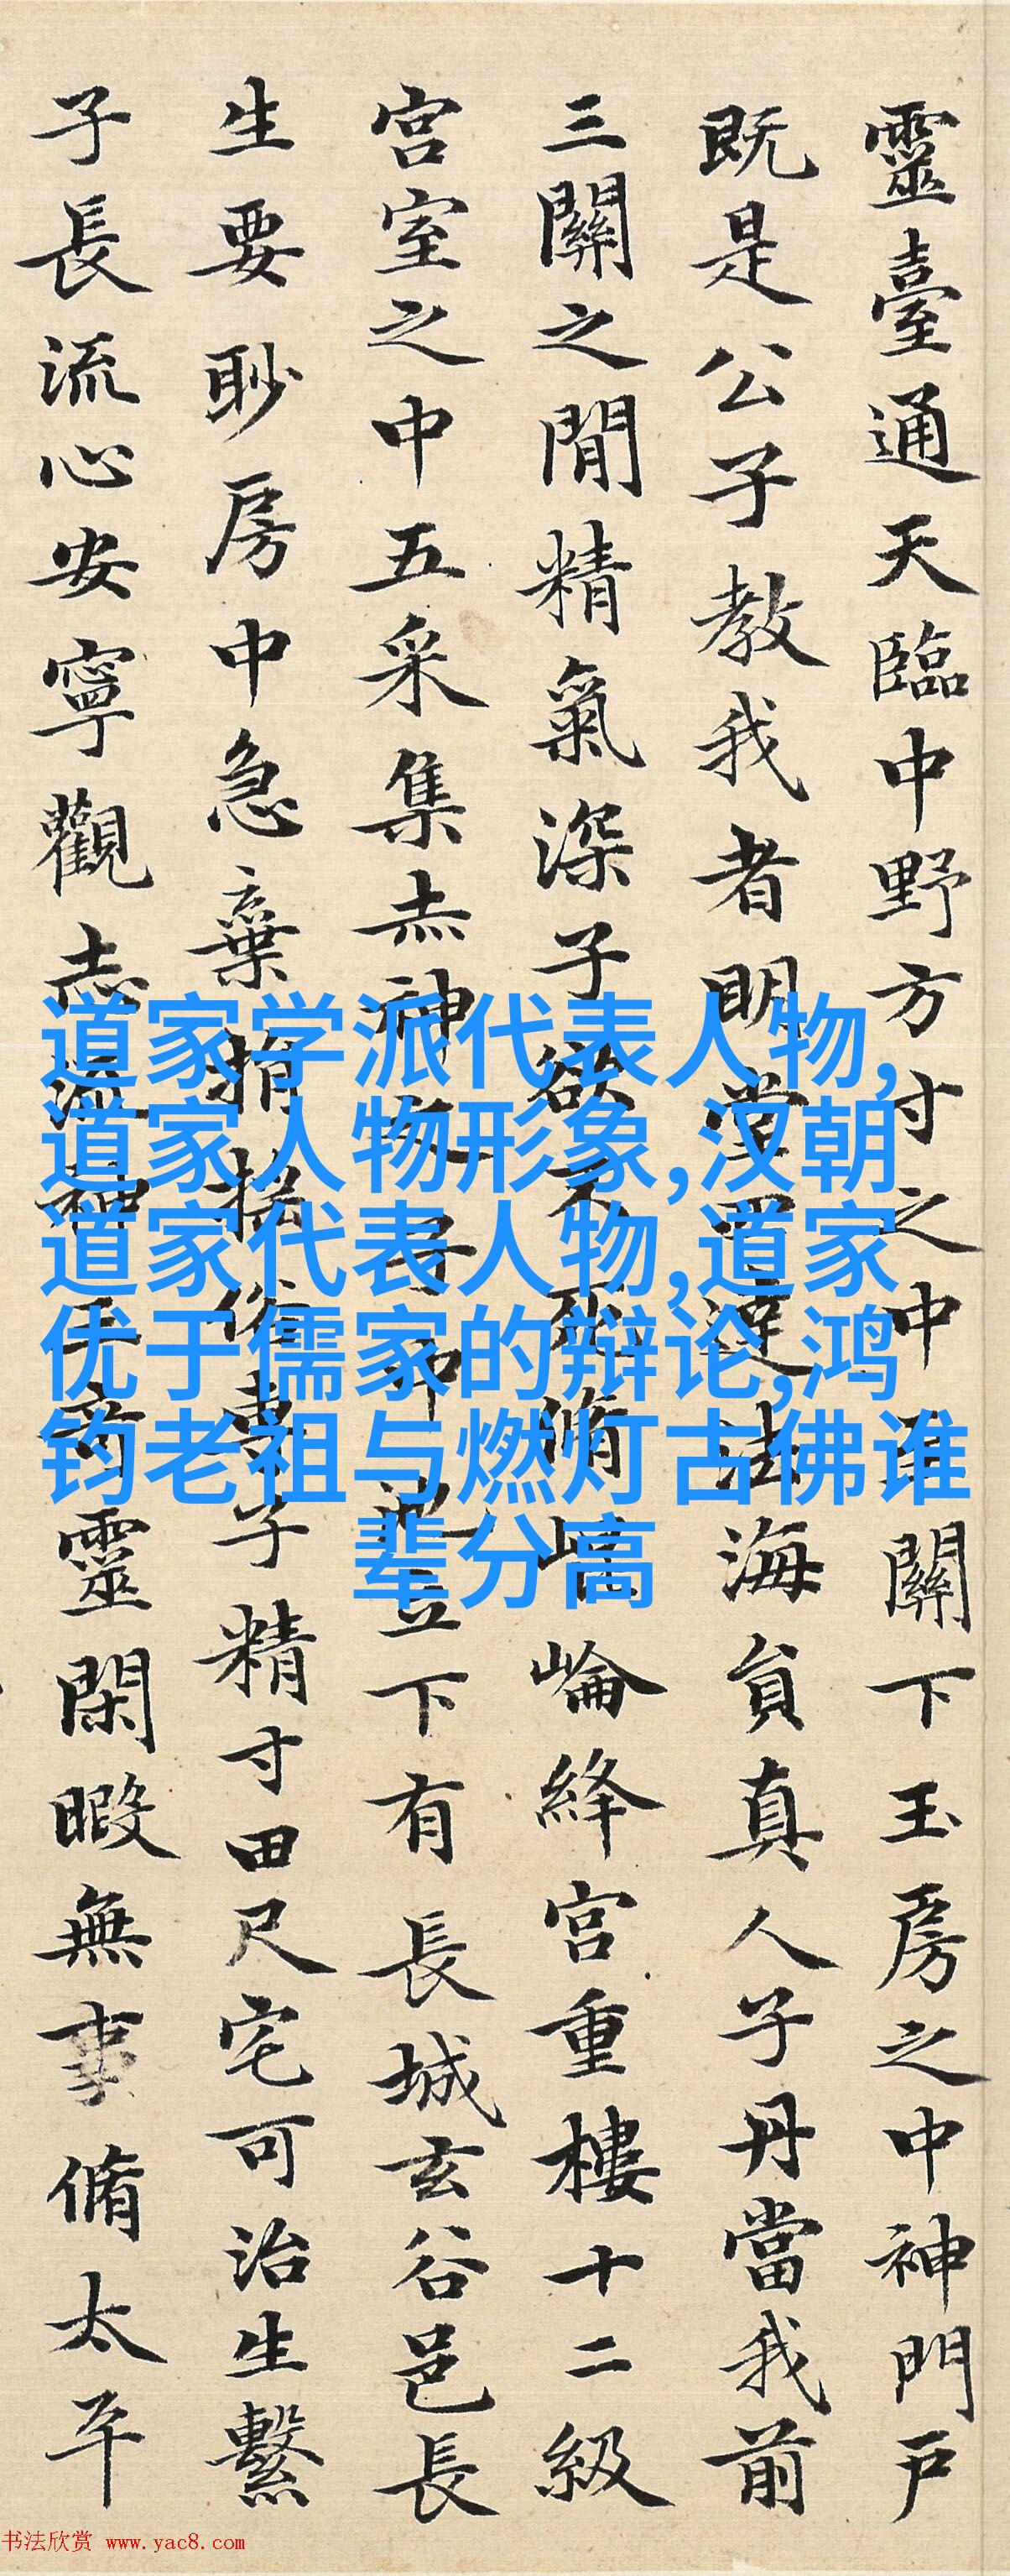 靈臺通天臨中野方寸之中關下玉房之中神門戶
既是公子教我者明堂四達法海貟真人子丹當我前
三關之閒精氣深子欲不死脩崐崘絳宮重樓十二級
宮室之中五采集赤神之子中池立下有長城玄谷邑長
生要眇房中急棄捐搖俗專子精寸田尺宅可治生繫
子長流心安寧觀志流神三奇靈閑暇無事脩太平
道家学派代表人物,
道家人物形象,汉朝
道家代表人物,道家
优于儒家的辩论,鸿
钧老祖与燃灯古佛谁
辈分高
书法欣赏 www.yac8.com